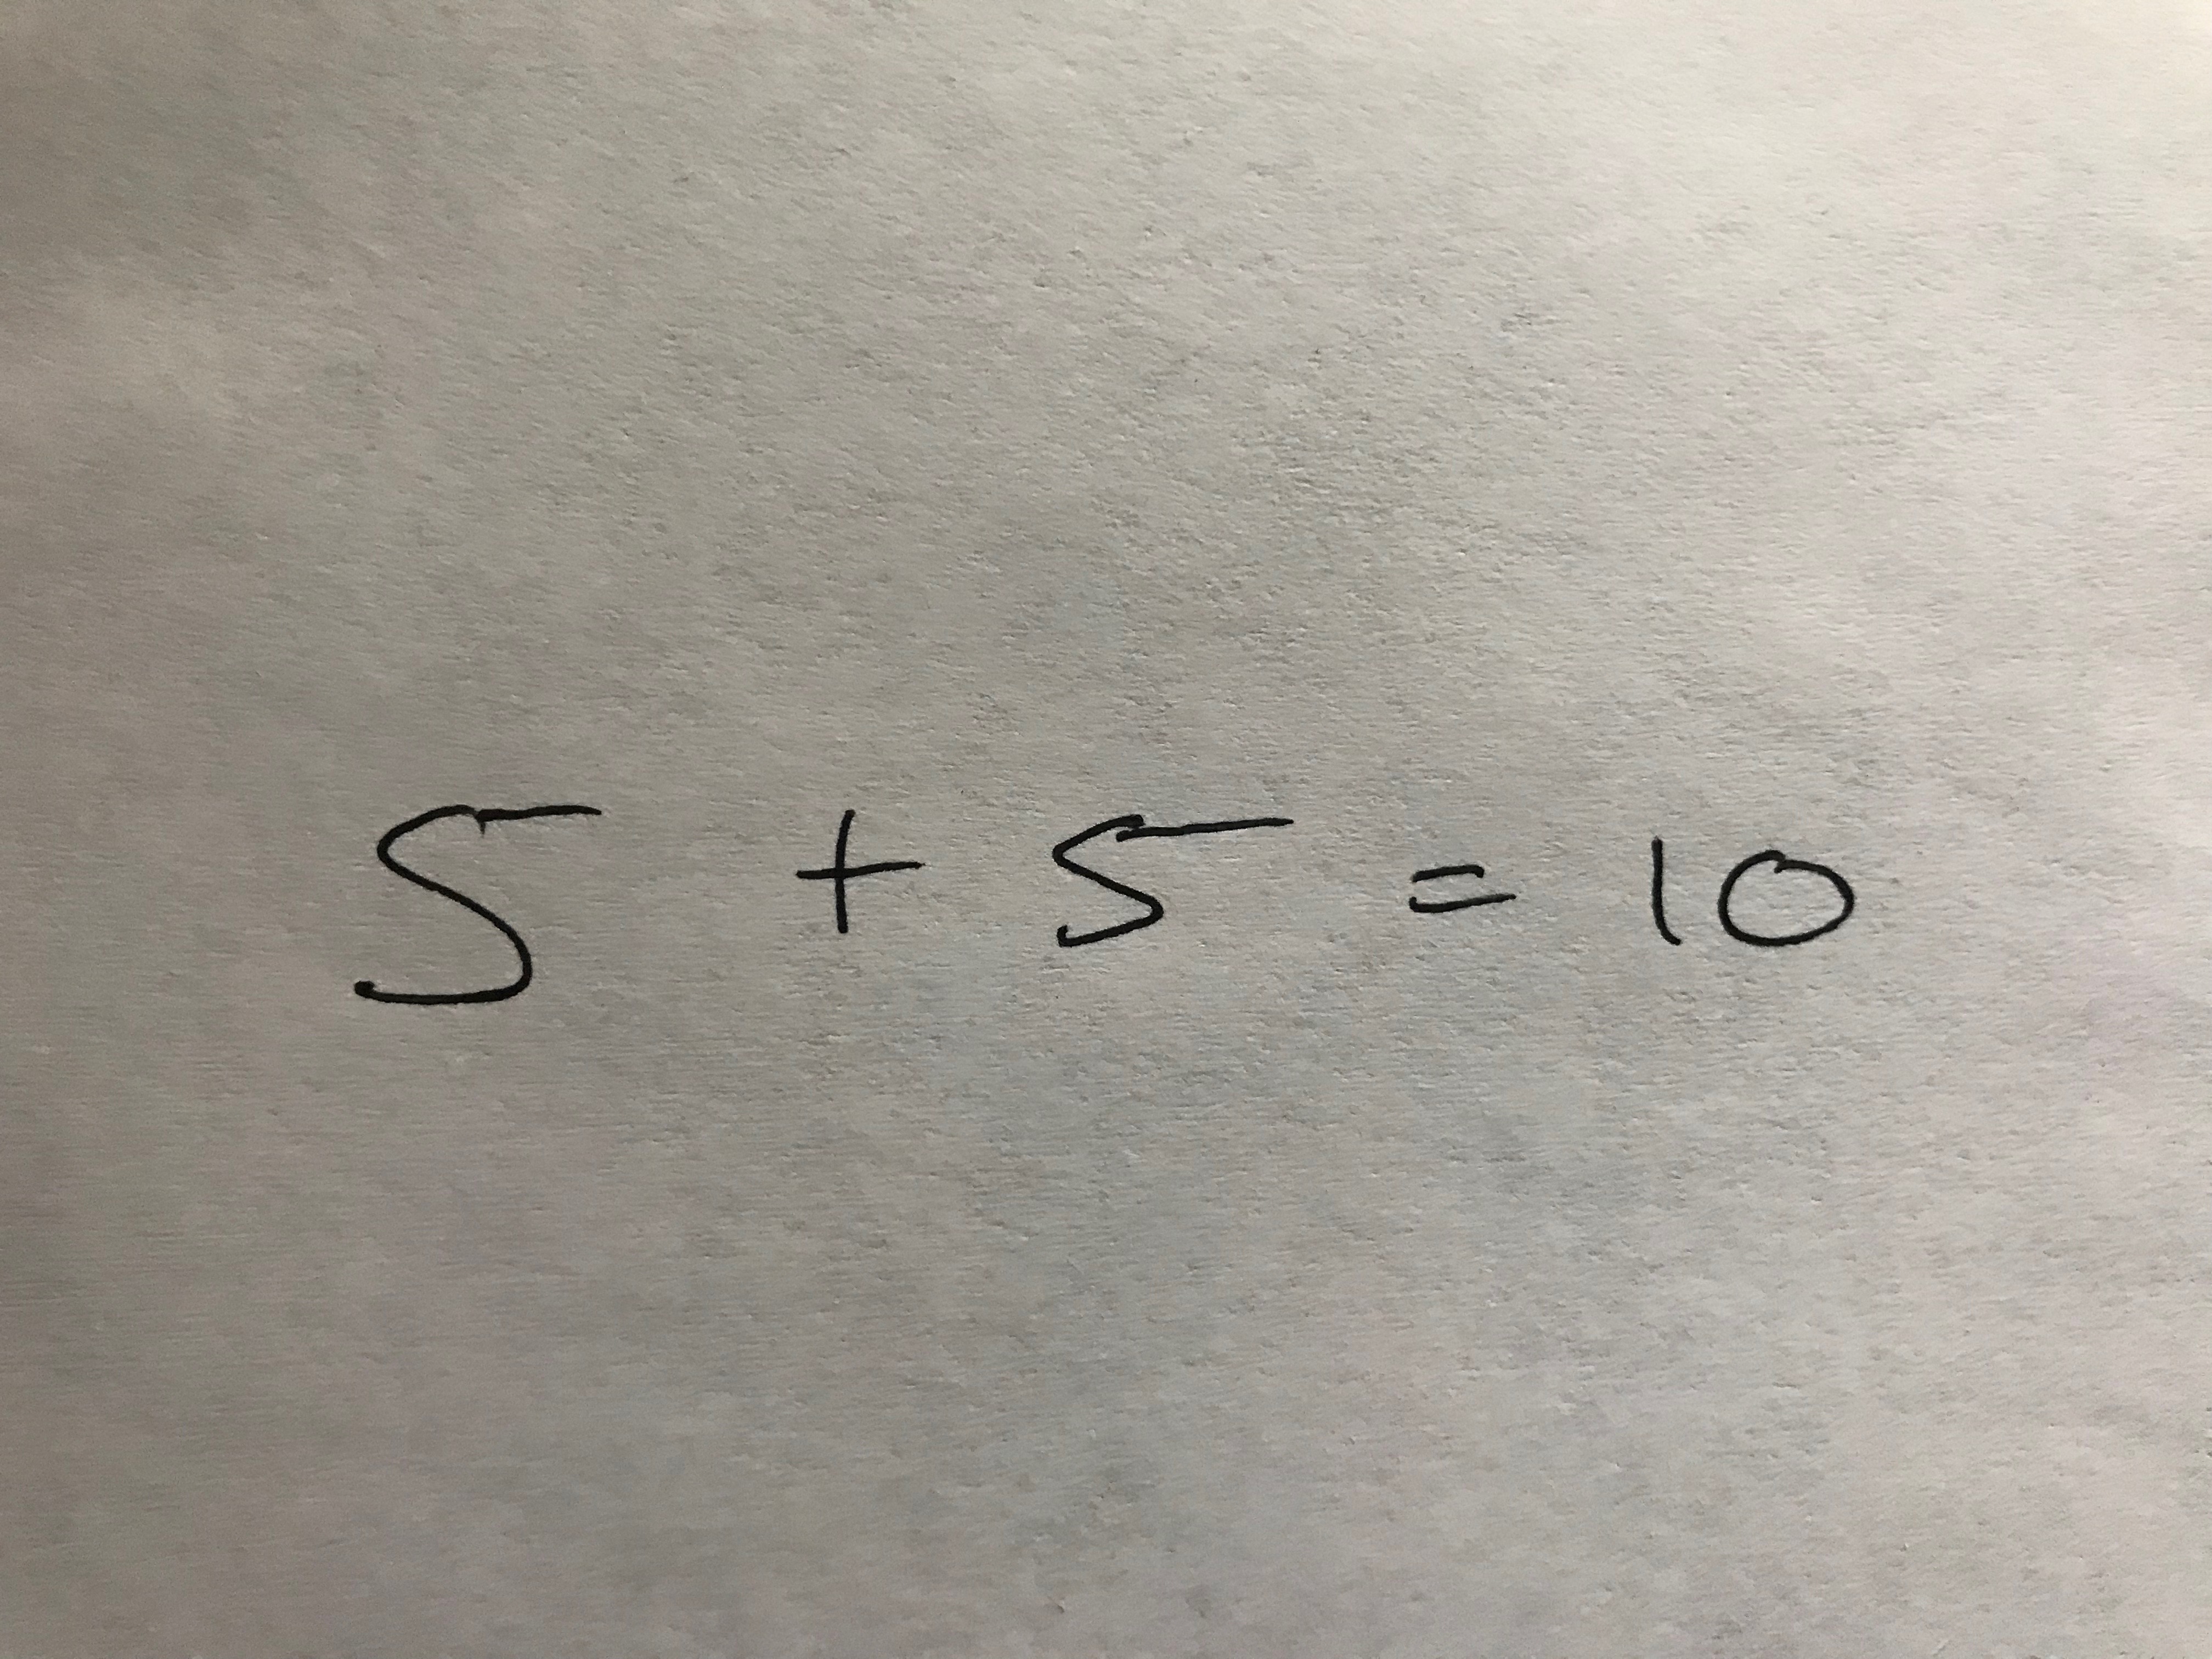 5 + 5 = 10